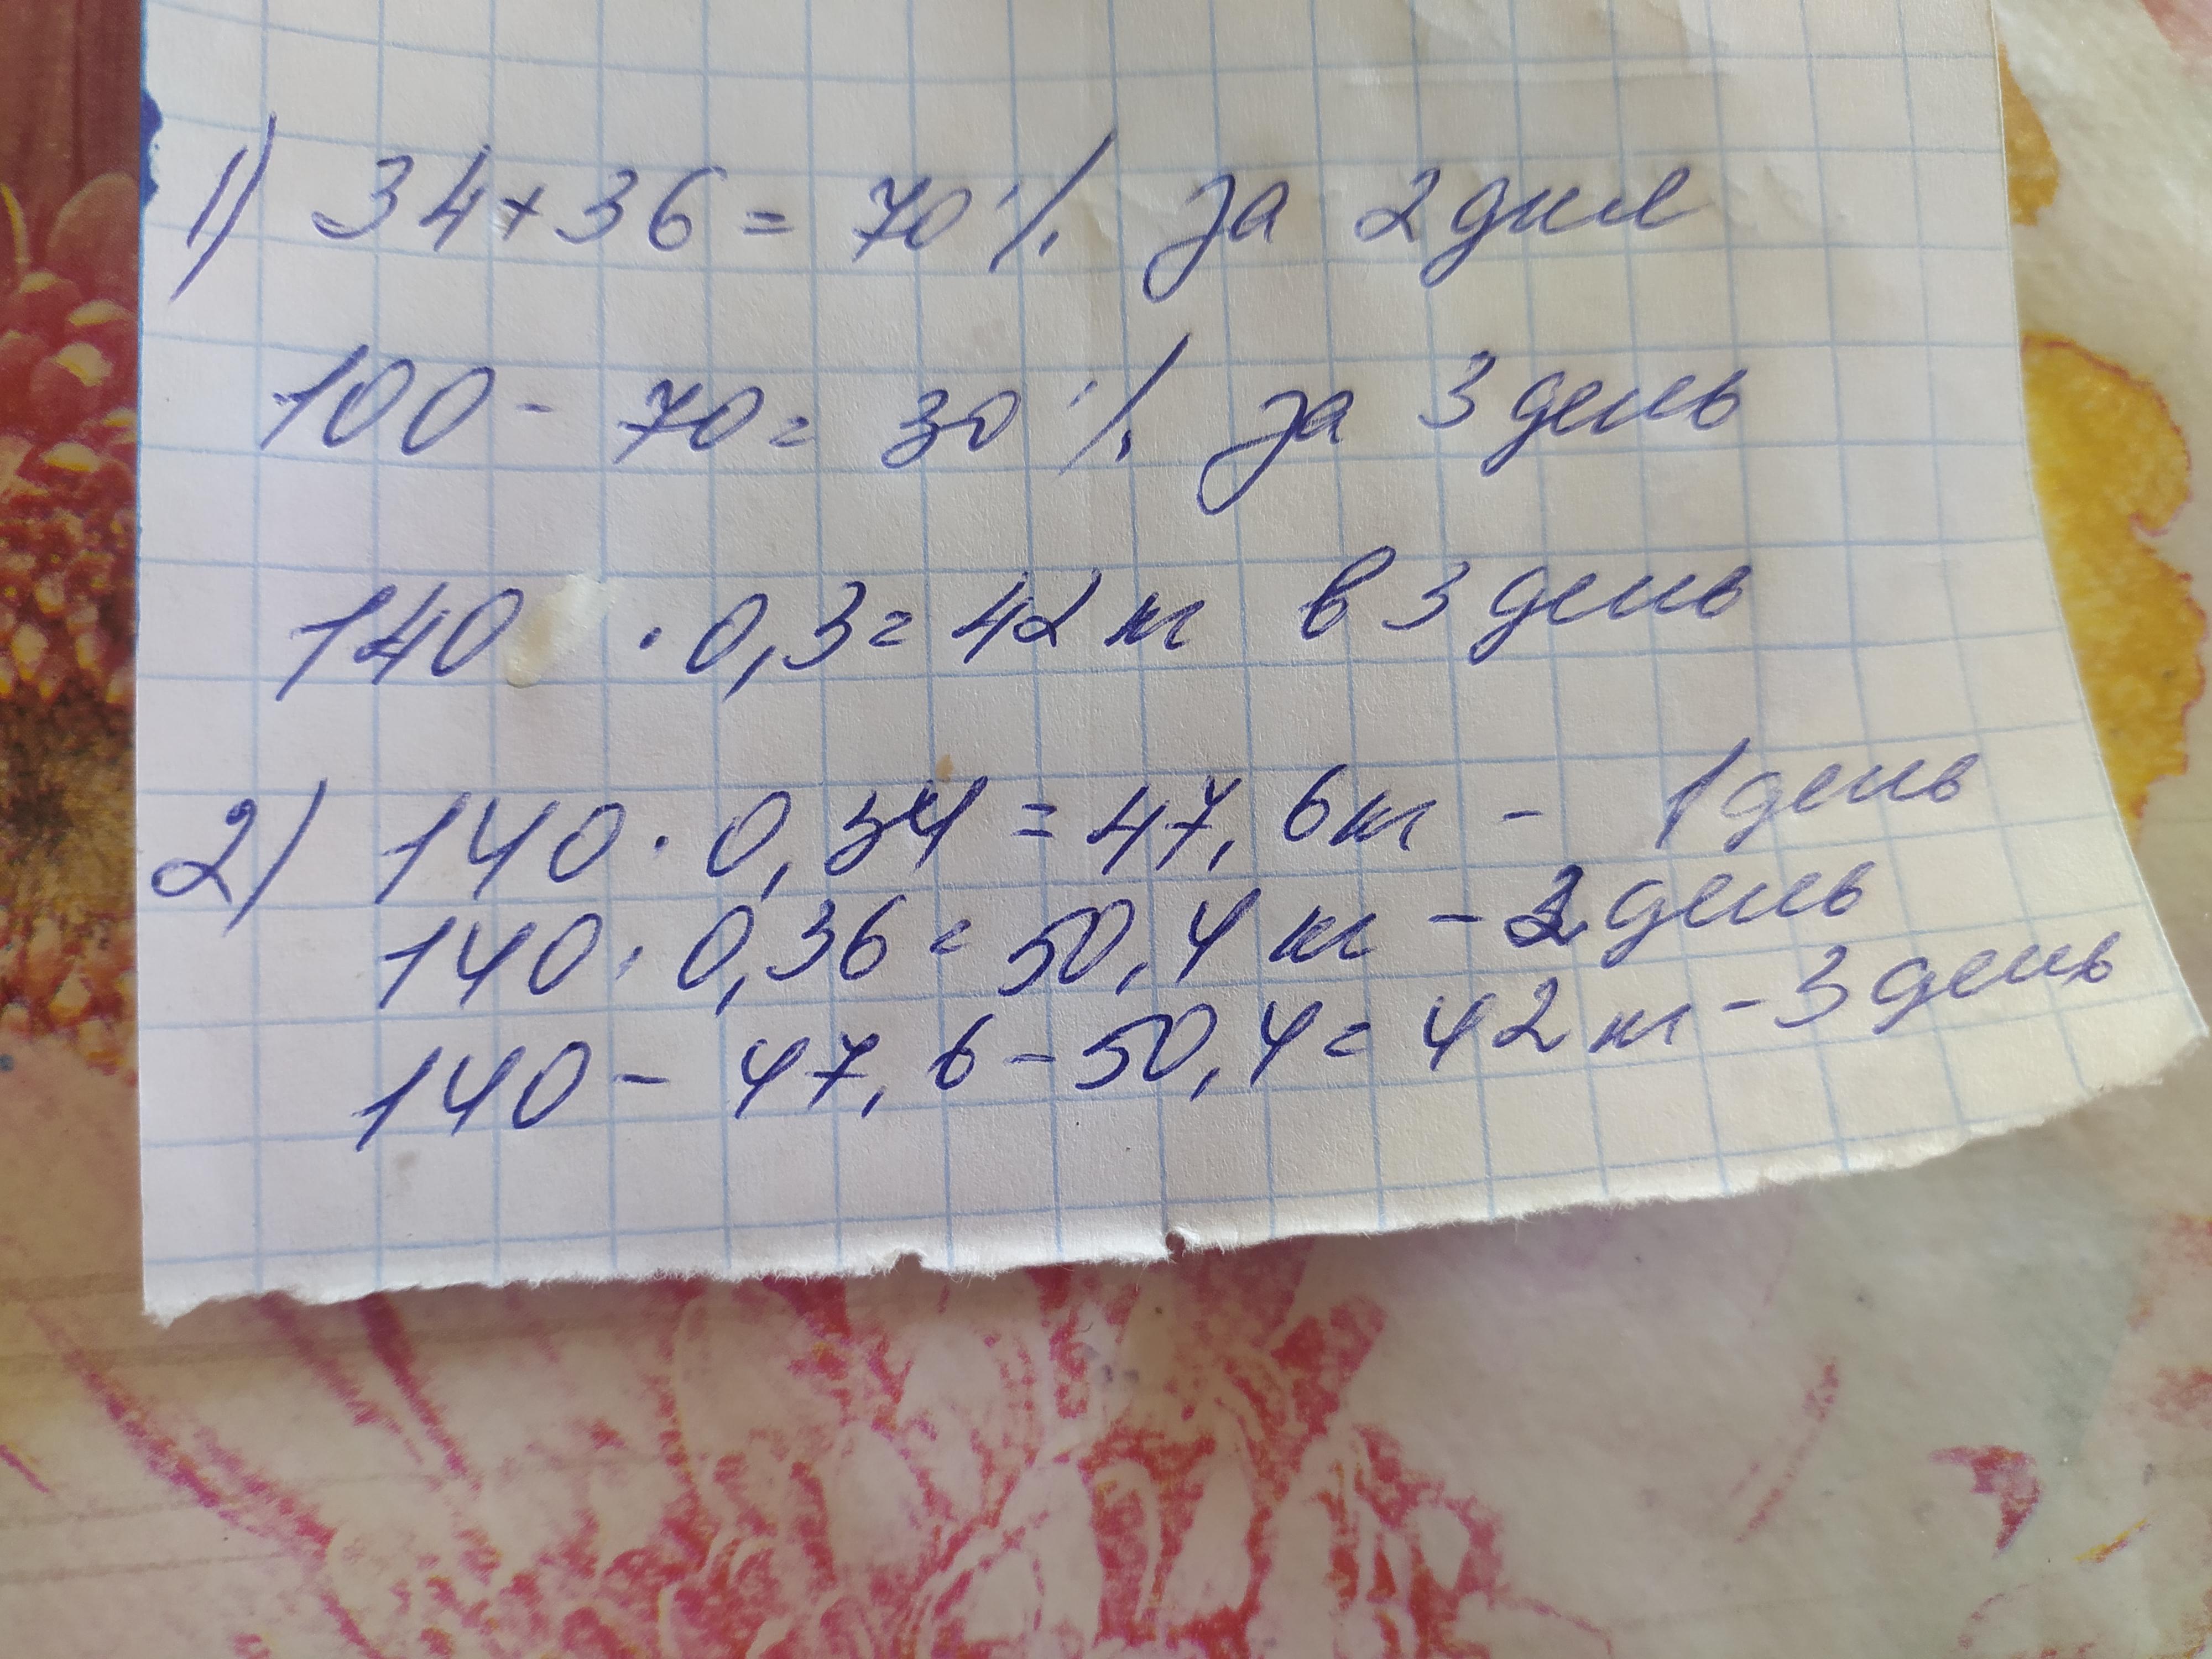 1) 34+36 = 70% за 2 дня
100 - 70 = 30% за 3 день
140 · 0,3 = 42 кг в 3 день
2) 140 · 0,34 = 47,6 кг - 1 день
140 · 0,36 = 50,4 кг - 2 день
140 - 47,6 - 50,4 = 42 кг - 3 день